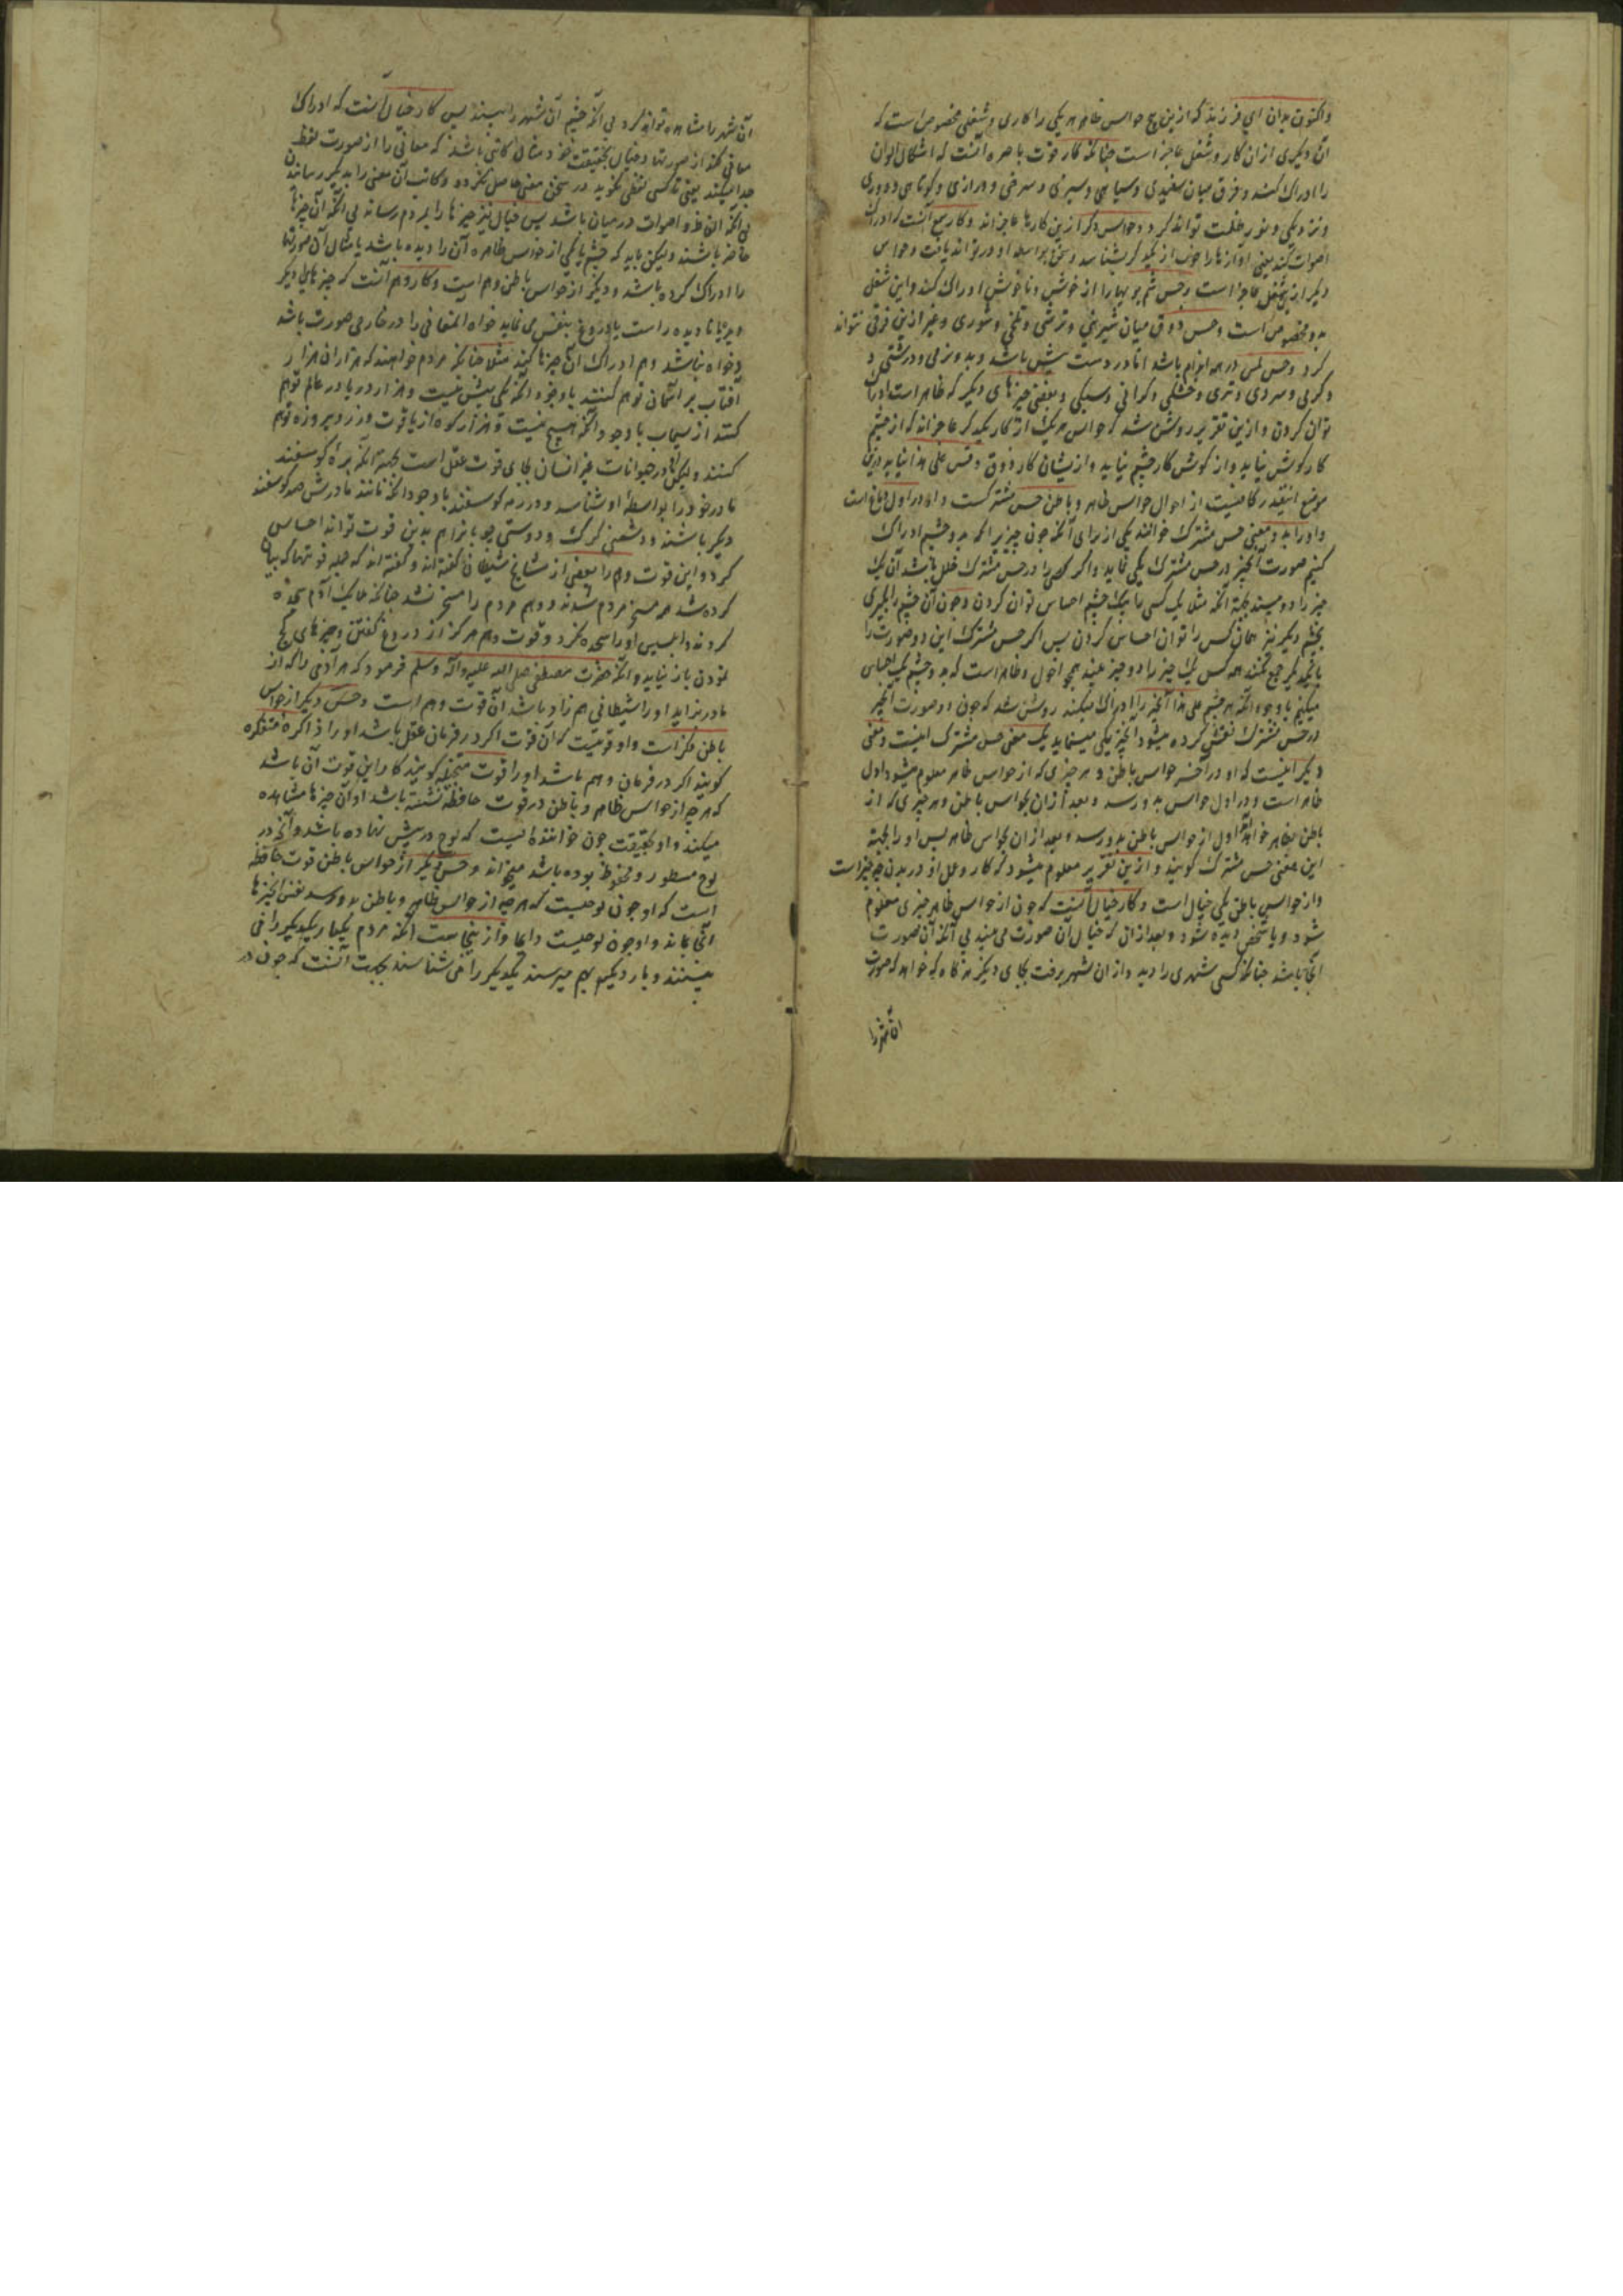 واکنون بدان ای فرزند که ازین پنج حواس ظاهر هر یکی را کاری و شغلی مخصوص است که
آن دیگری ازان کار و شغل عاجز است چنانکه کار قوت باصره آنست که اشکال الوان
را ادراک کند و فرق میان سفیدی و سیاهی و سبزی و سرخی و درازی و کوتاهی و دوری
و نزدیکی و نور و ظلمت تواند کرد و حواس دیگر ازین کارها عاجزاند و کار سمع آنست که ادراک
اصوات کند یعنی آوازها را خوب از یکدیگر بشناسد و سخن بواسطه او در تواند یافت و حواس
دیگر ازین شغل عاجز است و حس شم بویها را از خوش و ناخوش ادراک کند و این شغل
بدو مخصوص است و حس ذوق میان شیرینی و ترشی و تلخی و شوری و غیر ازین فرق تواند
کرد و حس لمس در همه اندام باشد اما در دست بیش باشد و بدو نرمی و درشتی و
و گرمی و سردی و تری و خشکی و گرانی و سبکی و بعضی چیزهای دیگر که ظاهر است ادراک
توان کردن و ازین تقریر روشن شد که حواس هر یک از کار یکدیگر عاجزاند که از چشم
کار گوش نیاید و از گوش کار چشم نیاید و ازیشان کار ذوق و قس علی هذا نیاید درین
موضع اینقدر کافیست از احوال حواس ظاهر و باطن حس مشترکست و او در اول دماغ است
و او را بدو معنی حس مشترک خوانند یکی از برای آنکه چون چیزیرا که بدو چشم ادراک
کنیم صورت آنچیز در حس مشترک یکی نماید و اگر کسی را در حس مشترک خلل باشد آن یک
چیز را دو بیند بجهة آنکه مثلا یک کسی را بیک چشم احساس توان کردن و چون آن چشم را بگیری
بچشم دیگر نیز همان کس را توان احساس کردن پس اگر حس مشترک این دو صورت را
با یکدیگر جمع نکند همه کس یک چیز را دو چیز بیند همچو احول و ظاهر است که بدو چشم یک احساس
میکنیم با وجود آنکه هر چشم علی هذا آنچیز را ادراک میکند روشن شد که چون دو صورت آنچیز
در حس مشترک نقش کرده میشود آنچیز یکی مینماید یک معنی حس مشترک اینست و معنی
دیگر اینست که او در آخر حواس باطن و هر چیزی که از حواس ظاهر معلوم میشود اول
ظاهر است و در اول حواس بدو رسد و بعد ازان بحواس باطن و هر چیزی که از
باطن بظاهر خواهد اول از حواس باطن بدو رسد و بعد ازان بحواس ظاهر پس او را بجهة
این معنی حس مشترک گویند و ازین تقریر معلوم میشود که کار و عمل او در بدن چه چیز است
و از حواس باطن یکی خیال است و کار خیال آنست که چون از حواس ظاهر چیزی معلوم
شود و یا شخصی دیده شود و بعد ازان که خیال آن صورت می بیند بی آنکه آن صورت
آنجا باشد چنانکه کسی شهری را دید و ازان شهر برفت بجای دیگر هر گاه که خواهد که صورت
آن شهر را
آن شهر را مشاهده تواند کرد بی آنکه چشم آن شهر را بیند پس کار خیال آنست که ادراک
معانی کند از صورتها و خیال بحقیقت خود مثال کاتبی باشد که معانی را از صورت لفظ
جدا میکند یعنی تا کسی لفظی نگوید در سخن معنی حاصل نگردد و کاتب آن معنی را بدیگر رساند
بی آنکه الفاظ و اصوات در میان باشد پس خیال نیز چیزها را بمردم رساند بی آنکه آن چیزها
حاضر باشند ولیکن باید که چشم یا یکی از حواس ظاهره آن را دیده باشد یا مثال آن صورتها
را ادراک کرده باشد و دیگر از حواس باطن وهم است و کار وهم آنست که چیزهای دیگر
نادیده راست یا دروغ بنفس می نماید خواه المعانی را در خارجی صورت باشد
و خواه نباشد وهم ادراک آن چیزها کند مثلا چنانکه مردم خواهند که هزاران هزار
آفتاب بر آسمان توهم کنند با وجود آنکه یکی بیش نیست و هزار دریا در عالم توهم
کنند از سیماب با وجود آنکه هیچ نیست و هزار کوه از یاقوت و زر و پیروزه توهم
کنند ولیکن در حیوانات غیر انسان بجای قوت عقل است بجهة آنکه بره گوسفند
مادر خود را بواسطه او شناسد و در رمه گوسفند با وجود آنکه مانند مادرش صد گوسفند
دیگر باشند و دشمنی گرگ و دوستی چوپانرا هم بدین قوت تواند احساس
کرد و این قوت وهم را بعضی از مشایخ شیطان گفته اند و گفته اند که جمله قوتها که بیان
کرده شد همه مسخر مردم شدند و وهم مردم را مسخر نشد چنانکه ملایک آدم سجده
کردند و ابلیس او را سجده نکرد و قوت وهم هرگز از دروغ گفتن و چیزهای کج
نمودن باز نیاید و آنکه حضرت مصطفی صلی الله علیه وآله وسلم فرمود که هر آدمی را که از
مادر بزاید او را شیطانی هم زاد باشد آن قوت وهم است و حس دیگر از حواس
باطن فکر است و او قوتیست که آن قوت اگر در فرمان عقل باشد او را ذاکره متفکره
گویند اگر در فرمان وهم باشد او را قوت متخیله گویند کار این قوت آن باشد
که هر چه از حواس ظاهر و باطن در قوت حافظه نشسته باشد او آن چیزها مشاهده
میکند و او بحقیقت چون خواننده ایست که لوح در پیش نهاده باشد و آنچه در
لوح مسطور و محفوظ بوده باشد میخواند و حس دیگر از حواس باطن قوت حافظه
است که او چون لوحیست که هر چه از حواس ظاهر و باطن بدو رسد نقش آنچیزها
آنجا بماند و او چون لوحیست دایما و از ینجاست آنکه مردم یکبار یکدیگر را می
بینند و بار دیگر بهم میرسند یکدیگر را می شناسند بجهت آنست که چون در